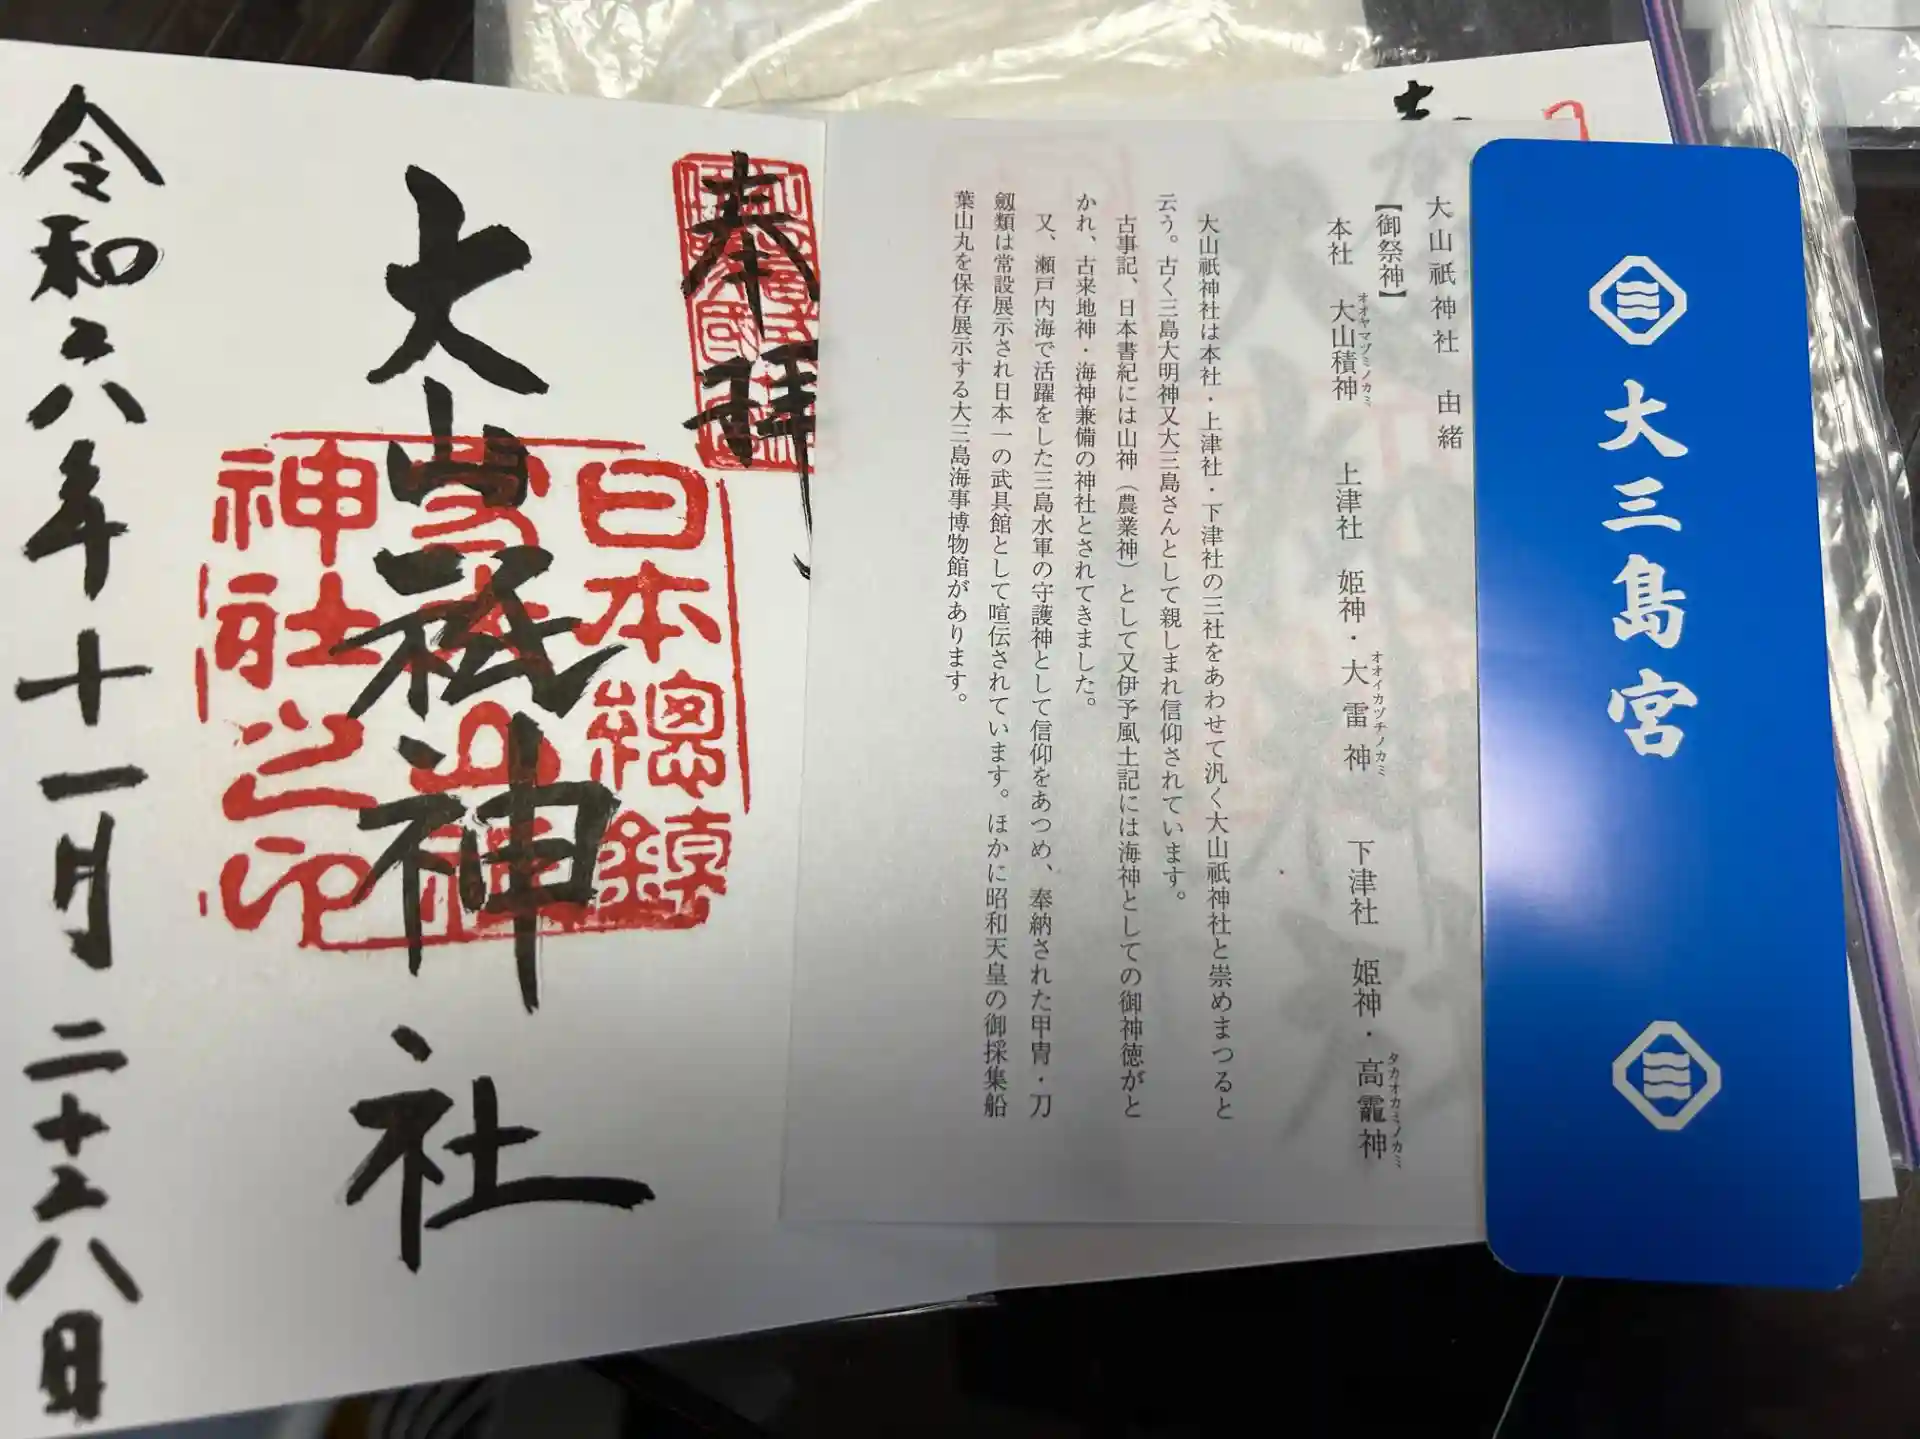 大三島宮
大山祇神社　由緒
【御祭神】
本社　大山積神　上津社　姫神・大雷神　下津社　姫神・高龗神
オオヤマヅミノカミ
オオイカヅチノカミ
タカオカミノカミ
大山祇神社は本社・上津社・下津社の三社をあわせて汎く大山祇神社と崇めまつると
云う。古く三島大明神又大三島さんとして親しまれ信仰されています。
古事記、日本書紀には山神（農業神）として又伊予風土記には海神としての御神徳がと
かれ、古来地神・海神兼備の神社とされてきました。
又、瀬戸内海で活躍をした三島水軍の守護神として信仰をあつめ、奉納された甲冑・刀
剱類は常設展示され日本一の武具館として喧伝されています。ほかに昭和天皇の御採集船
葉山丸を保存展示する大三島海事博物館があります。
奉拝
大山祇神社
日本總鎮
神社之印
令和六年十一月二十八日